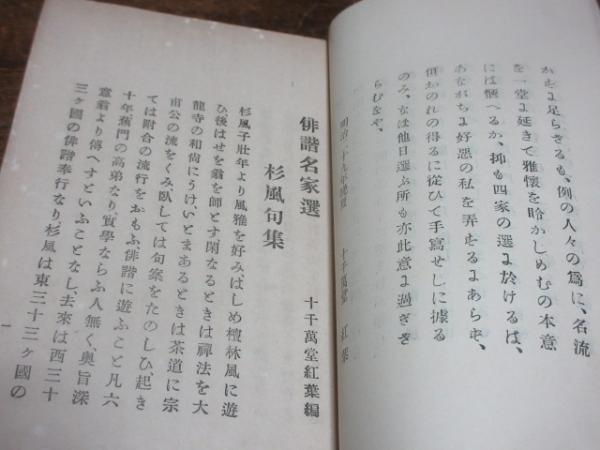 かは足らざるも、例の人々の爲に、名流
を一堂に延きて雅懷を聆かしめむの本意
には愜へるか、抑も四家の選に於けるは、
あながちに好惡の私を弄せるにあらず、
偶おのれの得るに從ひて手寫せしに據る
のみ、なほ他日選ぶ所も亦此意に過ぎざ
らむをや、
明治三十九年
十千萬堂 紅葉
俳諧名家選
十千萬堂紅葉編
杉風句集
杉風子壯年より風雅を好みはじめ檀林風に遊
ひ後はせを翁を師とす閑なるときは禪法を大
龍寺の和尙にうけ、いとまあるときは茶道に宗
甫公の流をくみ、臥しては句案をたのしひ、起き
ては附合の流行をおもふ俳諧に遊ふこと凡六
十年蕉門の高弟なり實學ならふ人無く奥旨深
意翁より傳へすといふことなし、去來は西三十
三ヶ國の俳諧奉行なり杉風は東三十三ヶ國の
一